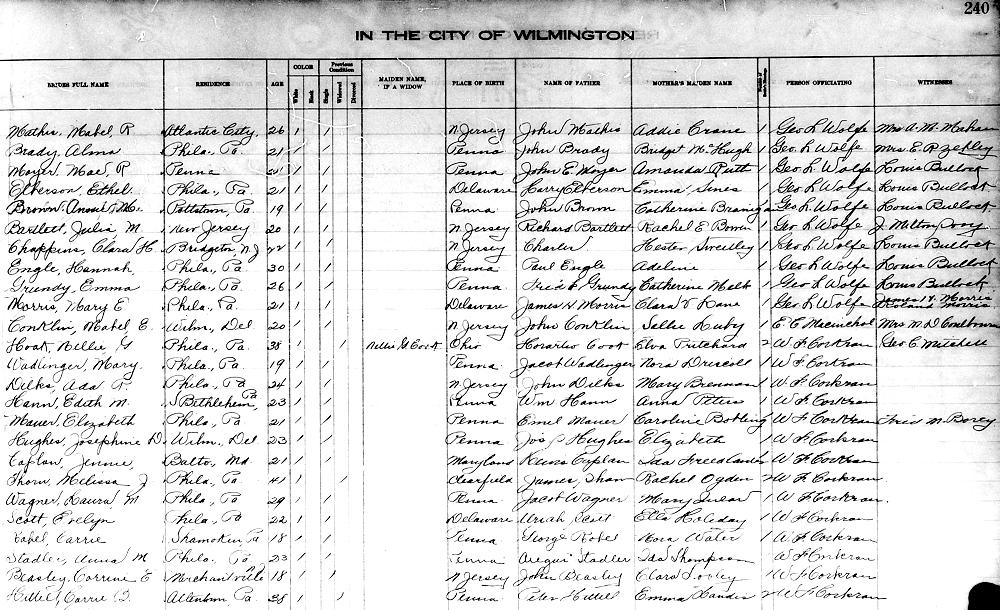 240
IN THE CITY OF WILMINGTON
COLOR Previous Condition
BRIDES FULL NAME RESIDENCE AGE White Black Single Widowed Divorced MAIDEN NAME, IF A WIDOW PLACE OF BIRTH NAME OF FATHER MOTHER'S MAIDEN NAME PERSON OFFICIATING WITNESSES
Mathis, Mabel R Atlantic City, 26 1 1 N Jersey John Mathis Addie Crane 1 Geo L Wolfe Mrs A. M.
Brady, Alma Phila, Pa. 21 1 1 Penna John Brady Bridget McHugh 1 Geo. L Wolfe Mrs E. R.
Moyer, Mae, R Penna 21 1 1 Penna John E Moyer Amanda Ruth 1 Geo L Wolfe Louis Bullock
Elberson, Ethel Phila, Pa 21 1 1 Delaware Harry Elberson Emma Sines 1 Geo L Wolfe Louis Bullock
Brown, Pottstown, Pa. 19 1 1 Penna John Brown Catherine Geo L Wolfe Louis Bullock
Bartlett, Julia M. New Jersey 20 1 1 N Jersey Richard Bartlett Rachel E Bowen 1 Geo L Wolfe J. Milton
Chappins, Clara H. Bridgeton, N J 22 1 1 N Jersey Charles Hester 1 Geo L Wolfe Louis Bullock
Engle, Hannah Phila, Pa 30 1 1 Penna Paul Engle Adeline 1 Geo L Wolfe Louis Bullock
Grundy, Emma Phila, Pa 26 1 1 Penna Grundy Catherine 1 Geo L Wolfe Louis Bullock
Morris, Mary E Phila, Pa. 21 1 1 Delaware James H Morris Clara V Kane 1 Geo L Wolfe Morris
Conklin, Mabel E. Wilm, Del 20 1 1 N Jersey John Conklin Sallie Luby 1 E C Macnichol Mrs M. D
Nellie G Phila, Pa. 38 1 1 Nellie G Coot Ohio Horatio Coot Elva Pritchard 2 W F Corkran Geo C Mitchell
Wadlinger, Mary. Phila, Pa 19 1 1 Penna Jacob Wadlinger Nora Driscoll 1 W F Corkran
Dilks, Ada R. Phila, Pa 24 1 1 N Jersey John Dilks Mary Brennan 1 W F Corkran
Hann, Edith M. S Bethlehem, Pa 23 1 1 Penna Wm Hann Anna 1 W F Corkran
Mauer, Elizabeth Phila, Pa 21 1 1 Penna Emil Mauer Caroline W F Corkran
Hughes, Josephine D. Wilm, Del 23 1 1 Penna Jos Hughes Elizabeth 1 W F Corkran
Caplan, Jennie, Balto, Md. 21 1 1 Maryland Caplan Ida Freedlander W F Corkran
Thorn, Melissa J Phila, Pa 41 1 1 Clearfield James, Rachel Ogden 2 W F Corkran
Wagner, Laura M Phila, Pa 29 1 1 Penna Jacob Wagner Mary 1 W F Corkran
Scott, Evelyn Phila, Pa 22 1 1 Delaware Uriah Scott Ella Holeday 1 W F Corkran
Carrie Shamokin Pa 18 1 1 Penna George Nora Water 1 W F Corkran
Stadler, Anna M Phila. Pa 23 1 1 Penna Stadler Ida Thompson W F Corkran
Beasley, Corrine E Merchantville 18 1 1 N Jersey John Beasley Clara 1 W F Corkran
Carrie Allentown Pa. 38 1 1 Penna Peter Emma 2 W F Corkran